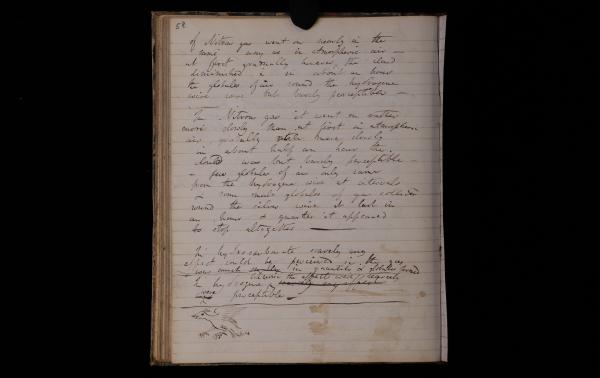 58
of Nitrous gas went on nearly in the
same way as in atmospheric air —
at first gradually however, the cloud
diminished & in about an hour
the globules of air round the hydrogene
wire were but barely perceptible —
In Nitrous gas it went on rather
more slowly than at first in atmospheric
air, gradually more slowly
in about half an hour the
cloud was but barely perceptible —
a few globules of air only came
from the hydrogene wire at intervals
& some small globules of gas
round the silver wire it last in
an hour & quarter it appeared
to stop altogether —
In hydrocarbonate scarcely any
effect could be perceived in the gas
was much in quantity & globules formed
In hydrogene the effects were scarcely
were perceptible —